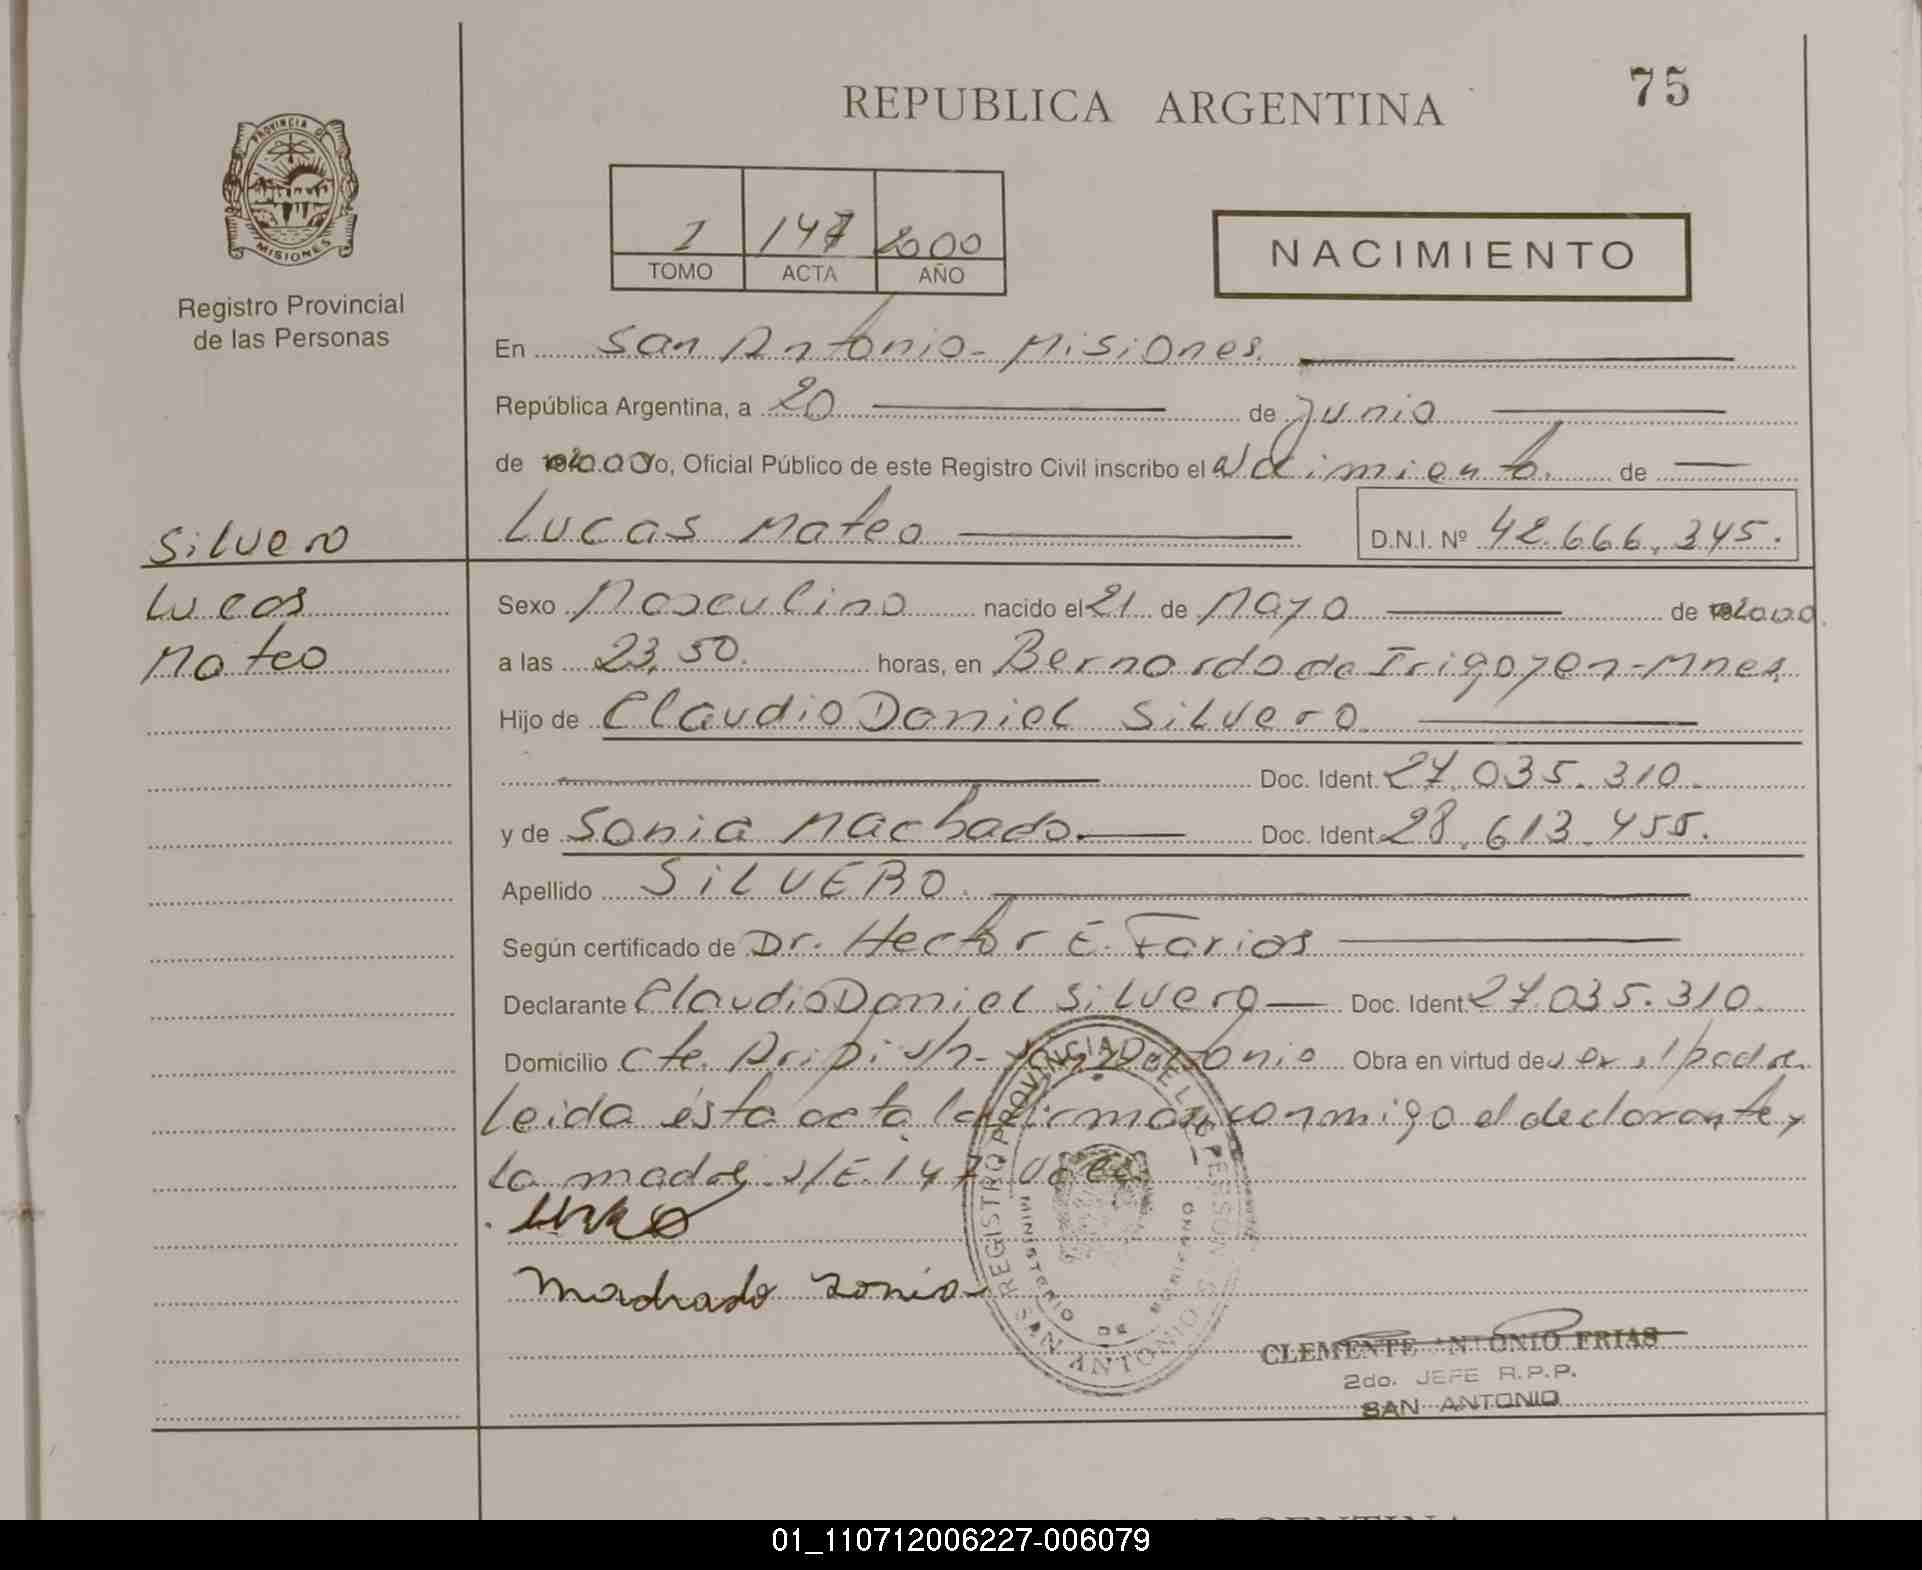 75
REPUBLICA ARGENTINA
PROVINCIA D
MISIONES
Registro Provincial
de las Personas
1 147 2000
TOMO ACTA AÑO
NACIMIENTO
En San Antonio - Misiones.
República Argentina, a 20 de Junio
de 2000 yo, Oficial Público de este Registro Civil inscribo el nacimiento de
Lucas Mateo D.N.I. Nº 42.666.345.
Silvero
Lucas
Mateo
Sexo Masculino nacido el 21 de Mayo de 2000
a las 23,50. horas, en Bernardo de Irigoyen - Mnes.
Hijo de Claudio Daniel Silvero.
Doc. Ident. 27.035.310.
y de Sonia Machado. Doc. Ident. 28.613.455.
Apellido SILVERO.
Según certificado de Dr. Hector E. Farias
Declarante Claudio Daniel Silvero Doc. Ident. 27.035.310.
Domicilio Cte. s/n - San Antonio Obra en virtud de ser el padre
Leida ésta acta la firman conmigo el declarante y
la madre. s/E. 147
Machado Sonia
REGISTRO PROVINCIAL DE LAS PERSONAS
MINISTERIO DE GOBIERNO
SAN ANTONIO
CLEMENTE ANTONIO FRIAS
2do. JEFE R.P.P.
SAN ANTONIO
ARGENTINA
01_110712006227-006079